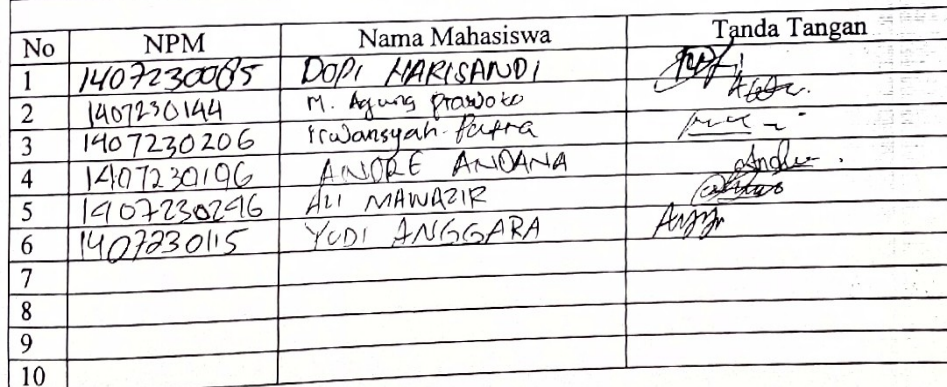 No NPM Nama Mahasiswa Tanda Tangan
1 1407230085 DOPI HARISANDI
2 1407230144 M. Agung Prawoto
3 1407230206 Irwansyah Putra
4 1407230196 ANDRE ANDANA
5 1407230246 ALI MAWAZIR
6 1407230115 YUDI ANGGARA
7
8
9
10